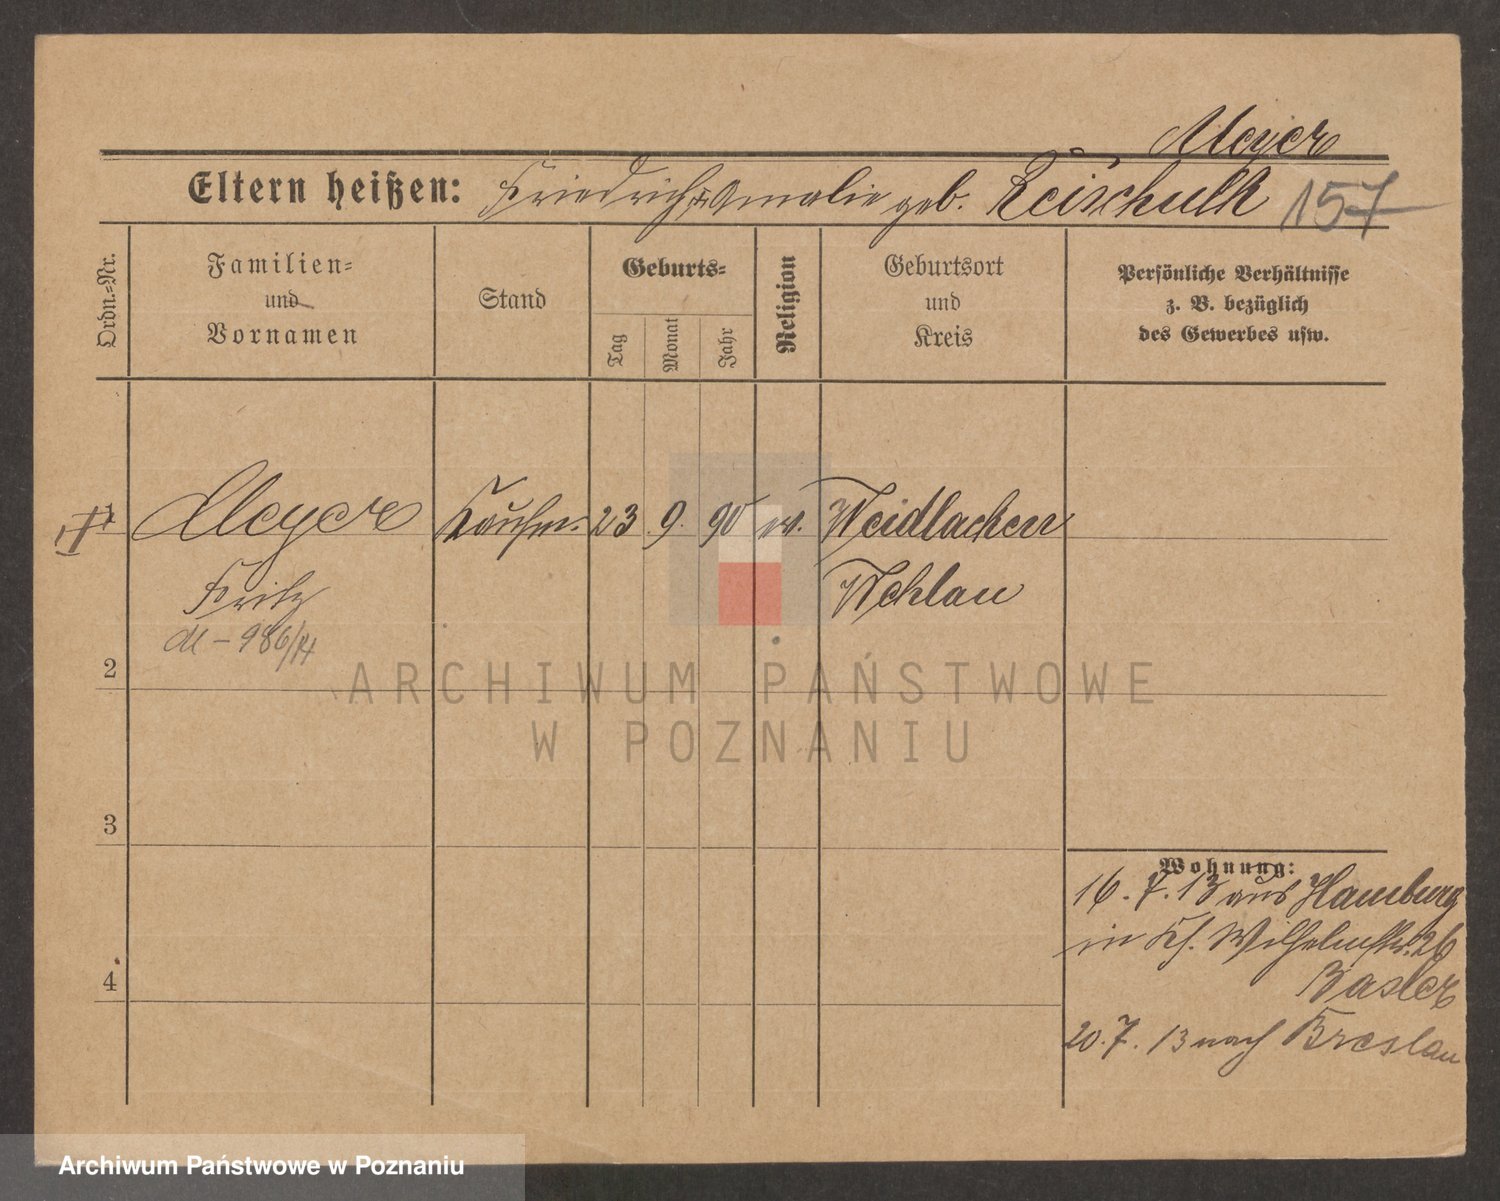 Meyer
Eltern heißen: Friedrich & Amalie geb. Reischulk 157
Ordn.-Nr.
Familien-
und
Vornamen
Stand
Geburts-
Tag
Monat
Jahr
Religion
Geburtsort
und
Kreis
Persönliche Verhältnisse
z. B. bezüglich
des Gewerbes usw.
1 Meyer Kaufm. 23. 9. 90 ev. Weidlacken
Fritz Wehlau
M - 986/14
2
ARCHIWUM PAŃSTWOWE
W POZNANIU
3
Wohnung:
16. 7. 13 aus Hamburg
in Wilhelmstr. 26
Basler
4
20. 7. 13 nach Breslau
Archiwum Państwowe w Poznaniu